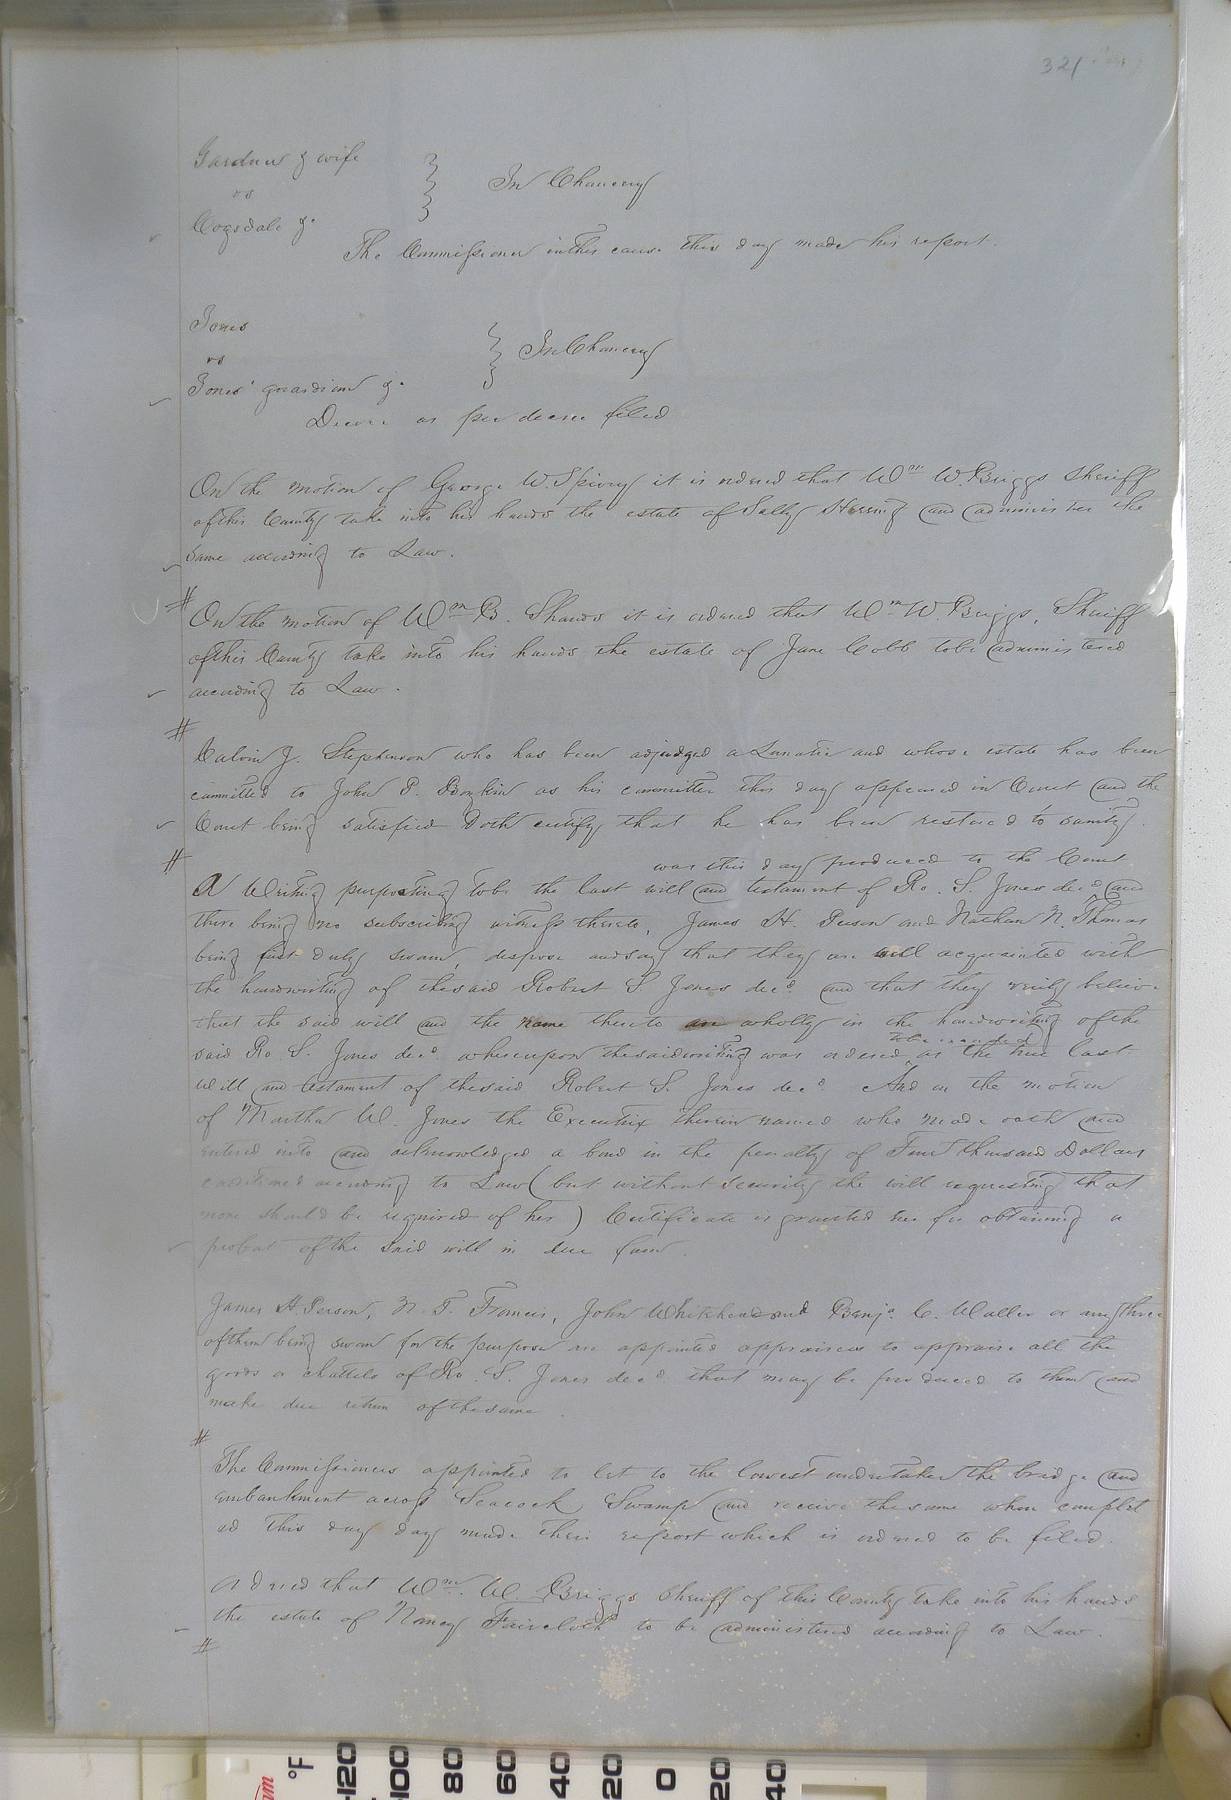 321
Gardner & wife
vs
Cogsdale &c
In Chancery
The Commissioner in this cause this day made his report.
Jones
vs
Jones' guardian &c
In Chancery
Decree as per decree filed
On the motion of George W. Spivey it is ordered that Wm W. Briggs Sheriff
of this County take into his hands the estate of Sally Herring and administer the
same according to Law.
#
On the motion of Wm B. Shands it is ordered that Wm W. Briggs, Sheriff
of this County take into his hands the estate of Jane Cobb to be administered
according to Law.
#
Calvin J. Stephenson who has been adjudged a Lunatic and whose estate has been
committed to John P. Boykin as his committee this day appeared in Court and the
Court being satisfied doth certify that he has been restored to sanity.
#
was this day produced to the Court
A Writing purporting to be the last will and testament of Ro. S. Jones decd and
there being no subscribing witness thereto, James H. Person and Nathan N. Thomas
being first duly sworn, depose and say that they are well acquainted with
the handwriting of the said Robert S. Jones decd. and that they verily believe
that the said will and the name thereto are wholly in the handwriting of the
to be recorded
said Ro. S. Jones decd. whereupon the said writing was ordered as the true last
will and testament of the said Robert S. Jones decd. And on the motion
of Martha W Jones the Executrix therein named who made oath and
entered into and acknowledged a bond in the penalty of Four thousand Dollars
conditioned according to Law (but without security the will requesting that
none should be required of her) Certificate is granted her for obtaining a
probat of the said will in due form.
James H. Person, N. T. Francis, John Whitehead and Benja. C. Waller or any three
of them being sworn for the purpose are appointed appraisers to appraise all the
goods & chattels of Ro. S. Jones decd. that may be produced to them and
make due return of the same.
#
The Commissioners appointed to let to the lowest undertaker the bridge and
embankment across Seacock Swamp and receive the same when complet
ed this day day made their report which is ordered to be filed.
Ordered that Wm. W. Briggs Sheriff of this County take into his hands
the estate of Nancy Faircloth to be administered according to Law.
#
°F
120
100
80
60
40
20
0
20
40